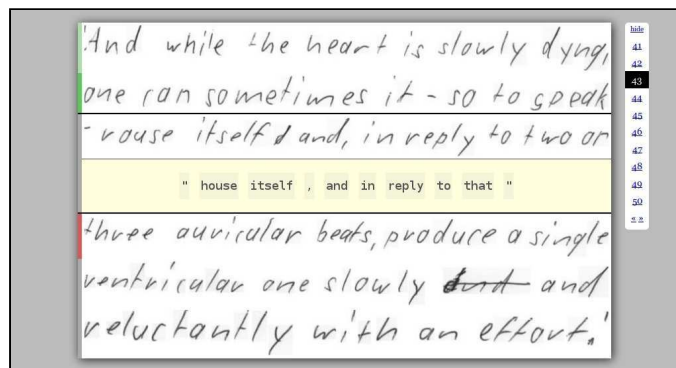 'And while the heart is slowly dyng,
one can sometimes it - so to speak
- rouse itself and, in reply to two or
" house itself , and in reply to that "
three auricular beats, produce a single
ventricular one slowly and
reluctantly with an effort.'
hide
41
42
43
44
45
46
47
48
49
50
« »